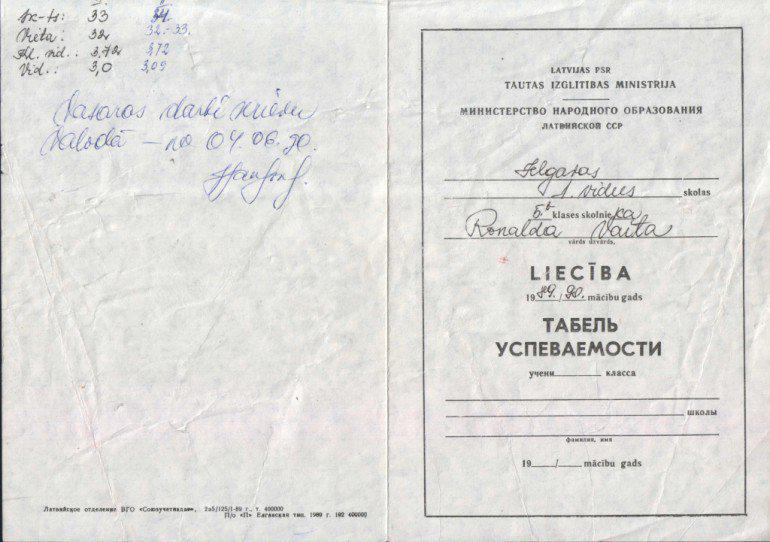 sk-ts: 33 34
Vieta: 32 32.-33.
Kl. vid.: 3,72 3,72
Vid.: 3,0 3,09
Vasaras darbi krievu
valodā – no 04.06.90.
LATVIJAS PSR
TAUTAS IZGLĪTĪBAS MINISTRIJA
МИНИСТЕРСТВО НАРОДНОГО ОБРАЗОВАНИЯ
ЛАТВИЙСКОЙ ССР
Jelgavas
1. vidus skolas
5. klases skolnieka
Ronalda Vaita
vārds uzvārds.
LIECĪBA
1989./90. mācību gads
ТАБЕЛЬ
УСПЕВАЕМОСТИ
учени класса
школы
фамилия, имя
19 / mācību gads
Латвийское отделение ВГО «Союзучетиздат», 2а5/125/1-89 г., т. 400000
П/о «П» Елгавская тип. 1989 г. 192 400000